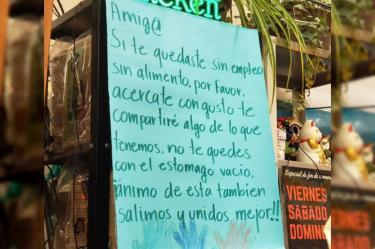 neken
Amig@
Si te quedaste sin empleo
sin alimento, por favor,
acercate con gusto te
compartiré algo de lo que
tenemos, no te quedes
con el estomago vacío,
ánimo de esta tambien
salimos y unidos mejor!!
Especial de fin de
VIERNES
SÁBADO
DOMING